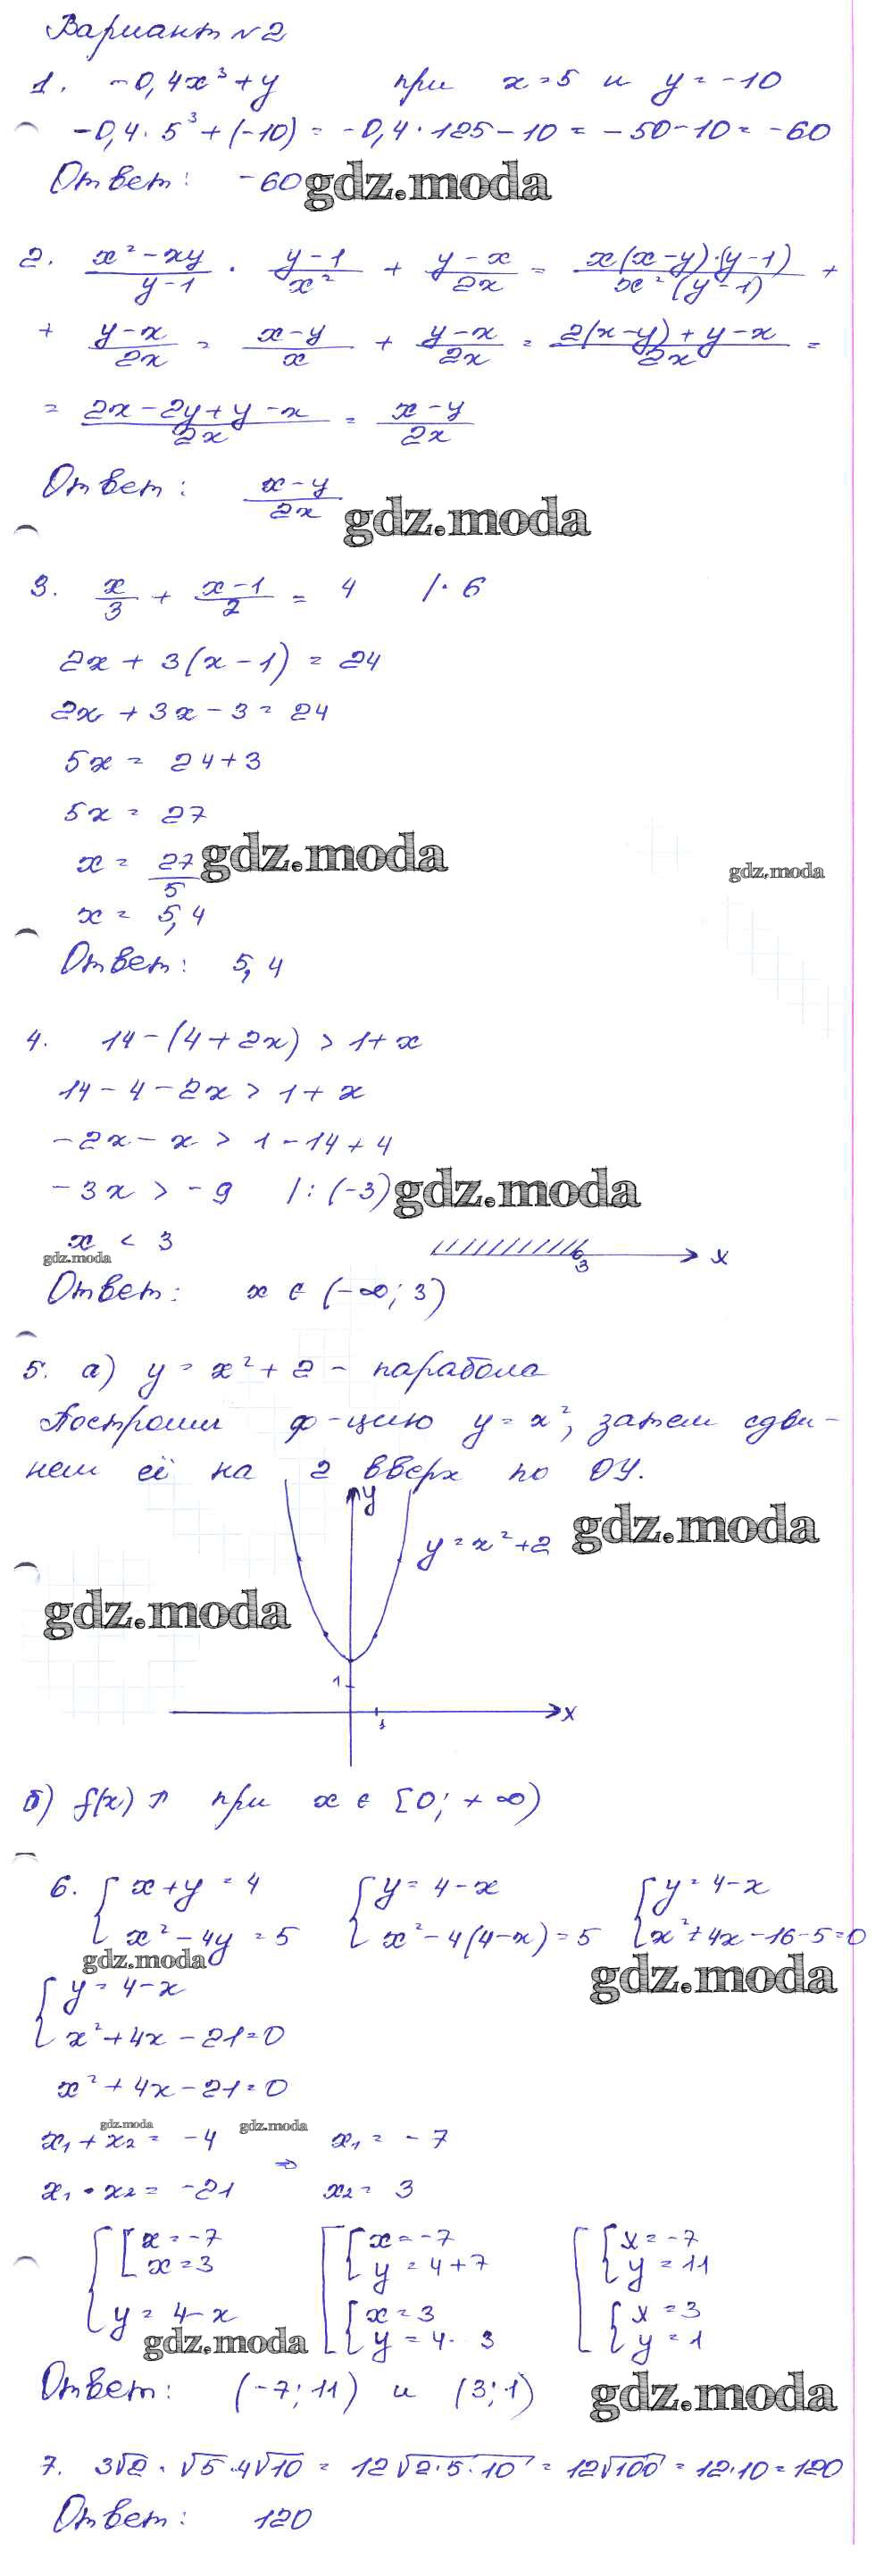 Вариант №2
1. -0,4x³+y при x=5 и y=-10
-0,4·5³+(-10)=-0,4·125-10=-50-10=-60
Ответ: -60 gdz.moda
2. (x²-xy)/(y-1) · (y-1)/x² + (y-x)/2x = x(x-y)·(y-1)/x²(y-1) +
+ (y-x)/2x = (x-y)/x + (y-x)/2x = (2(x-y)+y-x)/2x =
= (2x-2y+y-x)/2x = (x-y)/2x
Ответ: (x-y)/2x gdz.moda
3. x/3 + (x-1)/2 = 4 /·6
2x+3(x-1)=24
2x+3x-3=24
5x=24+3
5x=27
x=27/5 gdz.moda gdz.moda
x=5,4
Ответ: 5,4
4. 14-(4+2x)>1+x
14-4-2x>1+x
-2x-x>1-14+4
-3x>-9 /:(-3) gdz.moda
x<3 3 x
gdz.moda
Ответ: x∈(-∞;3)
5. а) y=x²+2 - парабола
Построим ф-цию y=x², затем сдви-
нем её на 2 вверх по OY.
y
y=x²+2 gdz.moda
gdz.moda
1
x
1
б) f(x)↗ при x∈[0;+∞)
6. { x+y=4 { y=4-x { y=4-x
x²-4y=5 x²-4(4-x)=5 x²+4x-16-5=0
gdz.moda gdz.moda
{ y=4-x
x²+4x-21=0
x²+4x-21=0
gdz.moda gdz.moda
x₁+x₂=-4 x₁=-7
⇒
x₁·x₂=-21 x₂=3
{ [ x=-7 [ { x=-7 [ { x=-7
x=3 y=4+7 y=11
y=4-x { x=3 { x=3
gdz.moda y=4-3 y=1
Ответ: (-7;11) и (3;1) gdz.moda
7. 3√2·√5·4√10=12√2·5·10=12√100=12·10=120
Ответ: 120